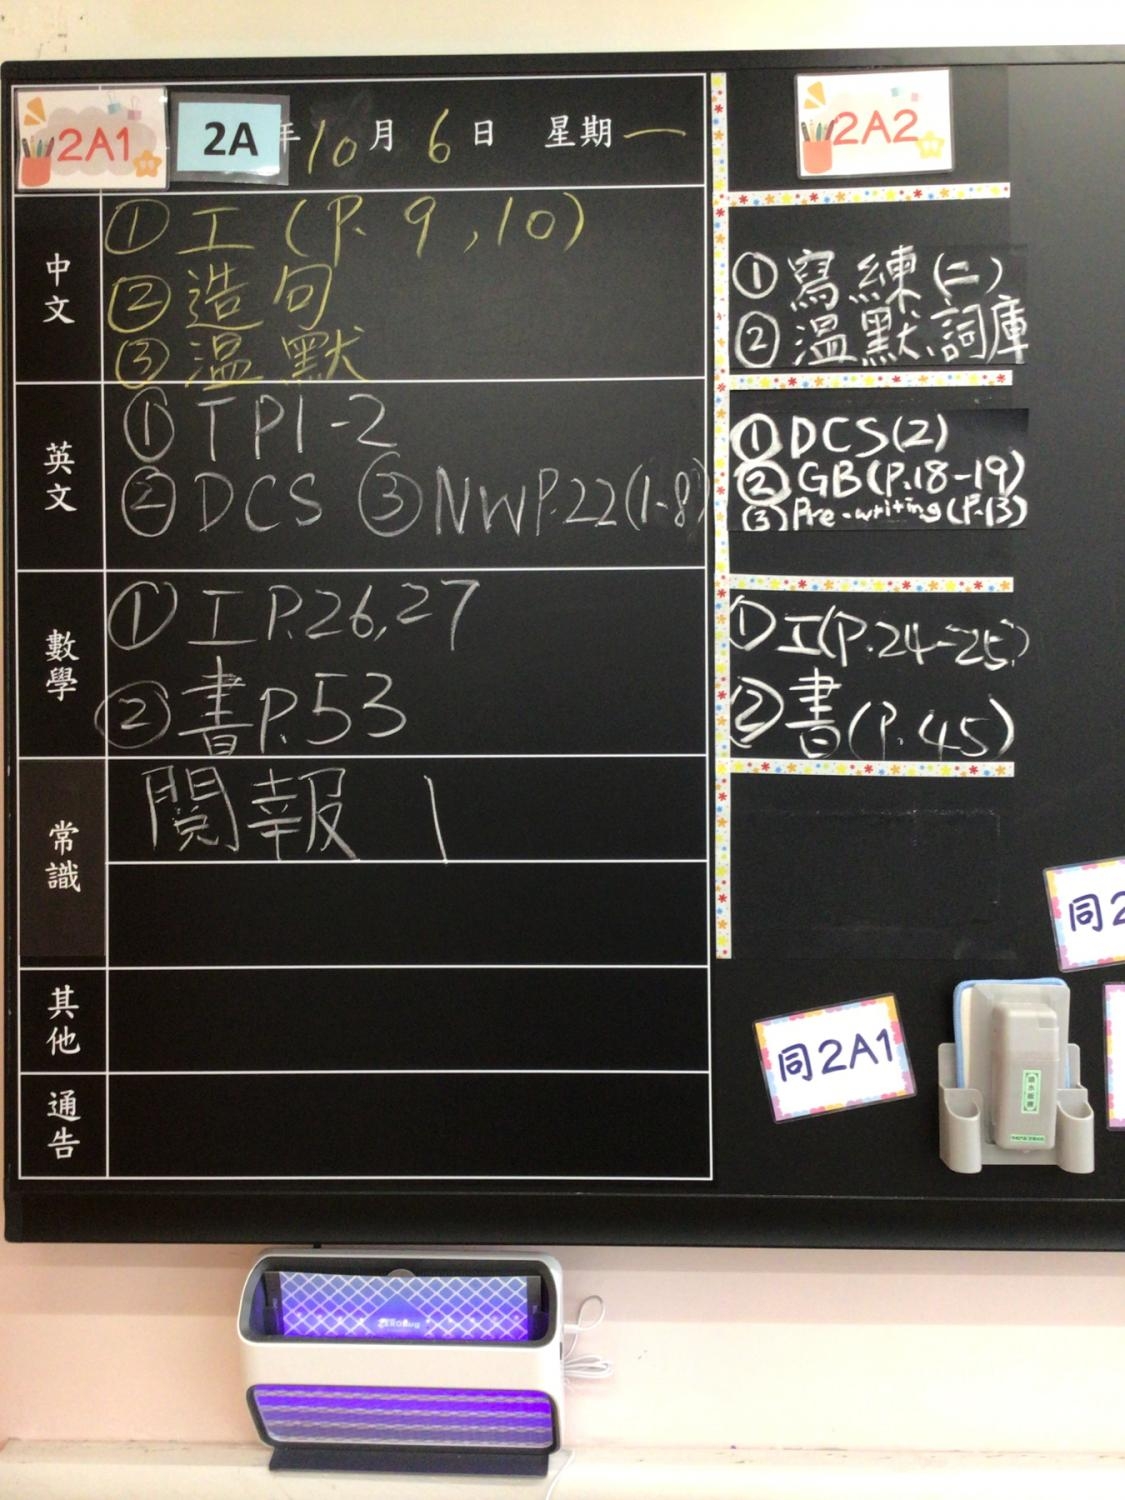 2A1
2A
年10月6日 星期一
2A2
中文
①工(P. 9,10)
②造句
③溫默
①寫練(二)
②溫默、詞庫
英文
①TP1-2
②DCS ③NWP.22(1-8)
①DCS(2)
②GB(P.18-19)
③Pre-writing(P.13)
數學
①工P.26,27
②書P.53
①工(P.24-25)
②書(P.45)
常識
閱報 1
其他
通告
同2
同2A1
ZEROBUG